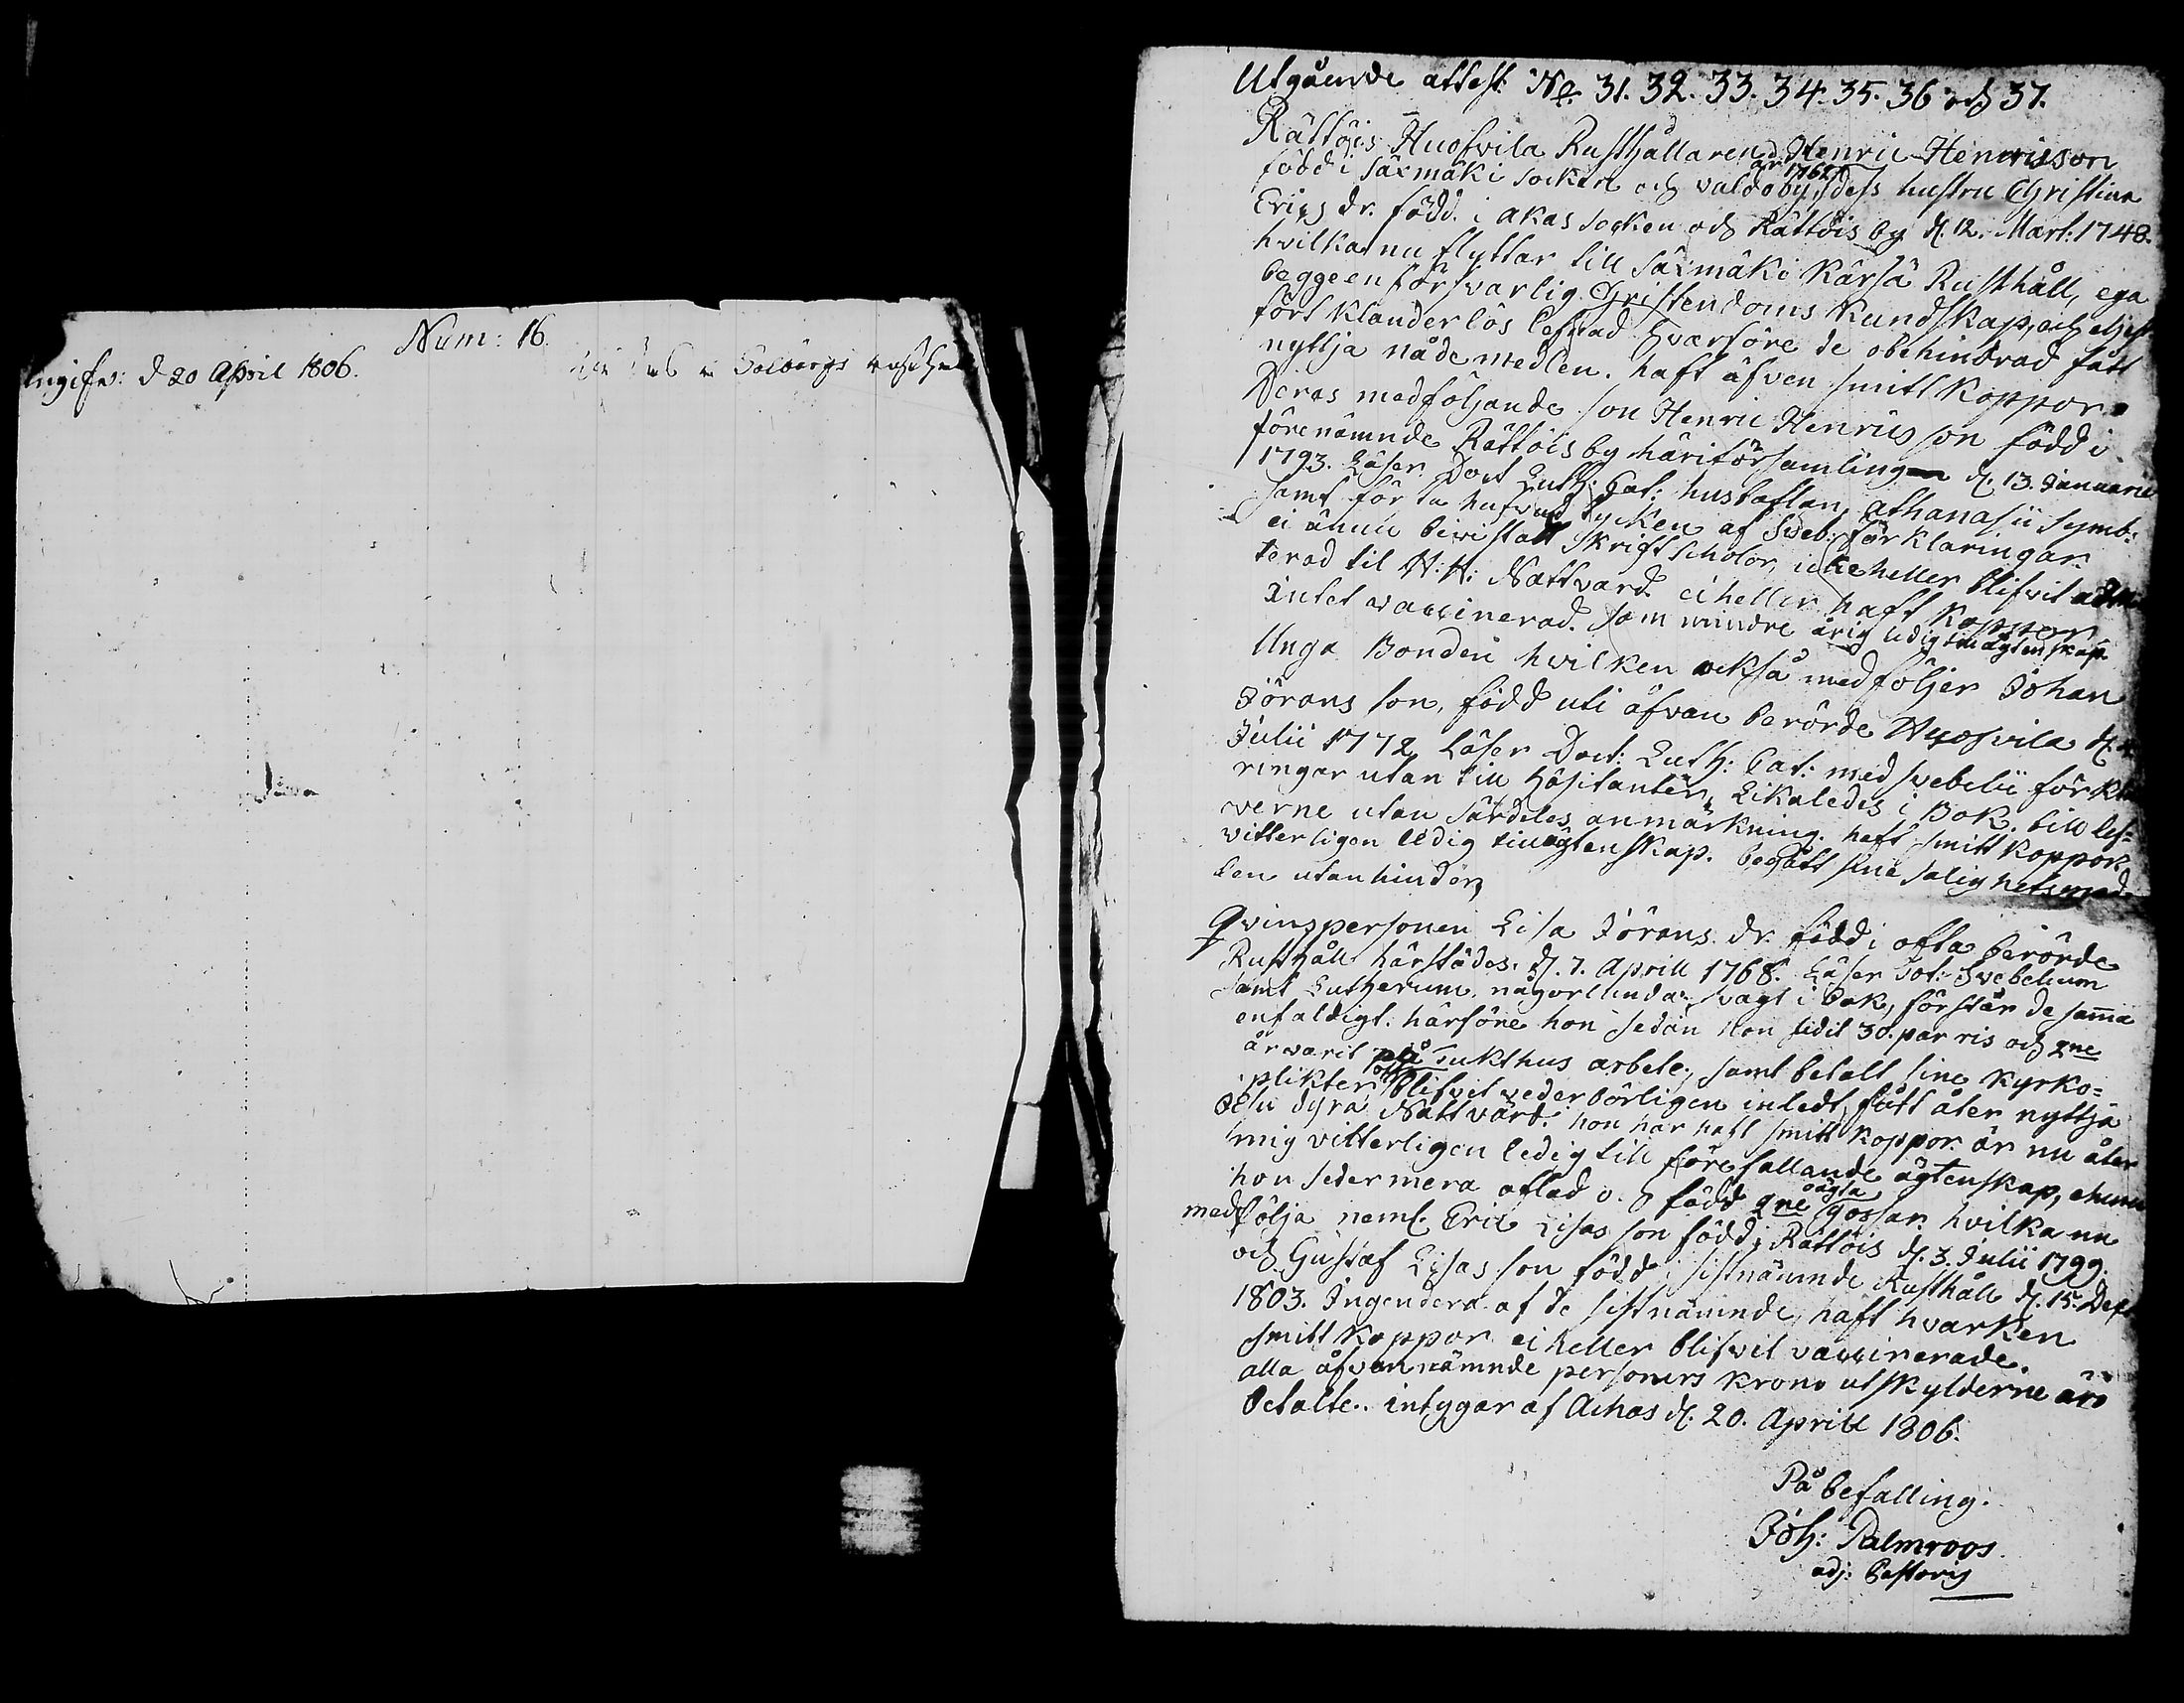 Num: 16.
Ingifv: d 20 April 1806.
Utgående attest. No. 31. 32. 33. 34. 35. 36 och 37.
Rättöjs Huofvila Rusthållaren Henric Henricsson
född i Säxmäki socken och valdo by, år 1762 dess hustru Christina
Erics dr. född i Akas socken och Rättöis by d. 12. Mart: 1748.
hvilka nu flyttar till Säxmäki Kärsä Rusthåll, ega
begge en försvarlig Christendoms Kundskap, och eljest
fört Klanderlös lefnad hvarföre de obehindrad fått
nyttja nådemedlen. haft äfven smitt Koppor.
Deras medföljande son Henric Henrics son född i
förenämnde Rättöis by här i församling d. 13. Januarii
1793. Läser Doct Luth: Cat: hustaflan, athanasii Symb:
samt för ta hufvud stycken af Sveb: förklaringar.
ei ännu bevistatt Skriftscholor, icke heller blifvit adm
terad til H: H: Nattvard. ei heller haft Koppor
Intet vaccinerad. som minder årig ledig till ägtenskap.
Unga Bonden hvilken också medföljer Johan
Jörans son, född uti åfvan berörde Huofvila d.
Julii 1772 Läser Doct: Luth: Cat: med Svebelii förkla
ringar utan till häsitanter, Likaledes i Bok. till lef=
verne utan särdeles anmärkning. haft smitt koppor
vitterligen ledig till ägtenskap. begått sine salighetsmed=
len utan hinder,
Qvinspersonen Lisa Jörans dr. född i ofta berörde
Rusthåll härstädes. d. 7. Aprill 1768. Läser Svebelium
samt Lutherum någorlunda, svagt i Bok, förstår de samma
enfaldigt. härföre hon sedan hon lidit 30. par ris och 2ne
år varit på Tukthus arbete, samt betalt sine Kyrko=
plikter blifvit vederbörligen inledt, fått åter nyttja
dyra Nattvard. hon har haft smitt koppor. är nu åter
mig vitterligen ledig till förefallande ägtenskap, ehuru
hon sedermera aflad o. född 2ne oägta gossar. hvilka nu
medfölja neml. Eric Lisas son född i Rättöis d. 3. Julii 1799.
och Gustaf Lisas son född i sistnämnde Rusthåll d. 15. Dec
1803. Ingendera af de sistnämnde, haft hvarken
smitt koppor ei heller blifvit vaccinerade.
alla åfvannämnde personers krono utskylderne äro
betalte. intygar af Achas d. 20. Aprill 1806.
På befalling.
Joh: Palmroos.
adj: Pastoris